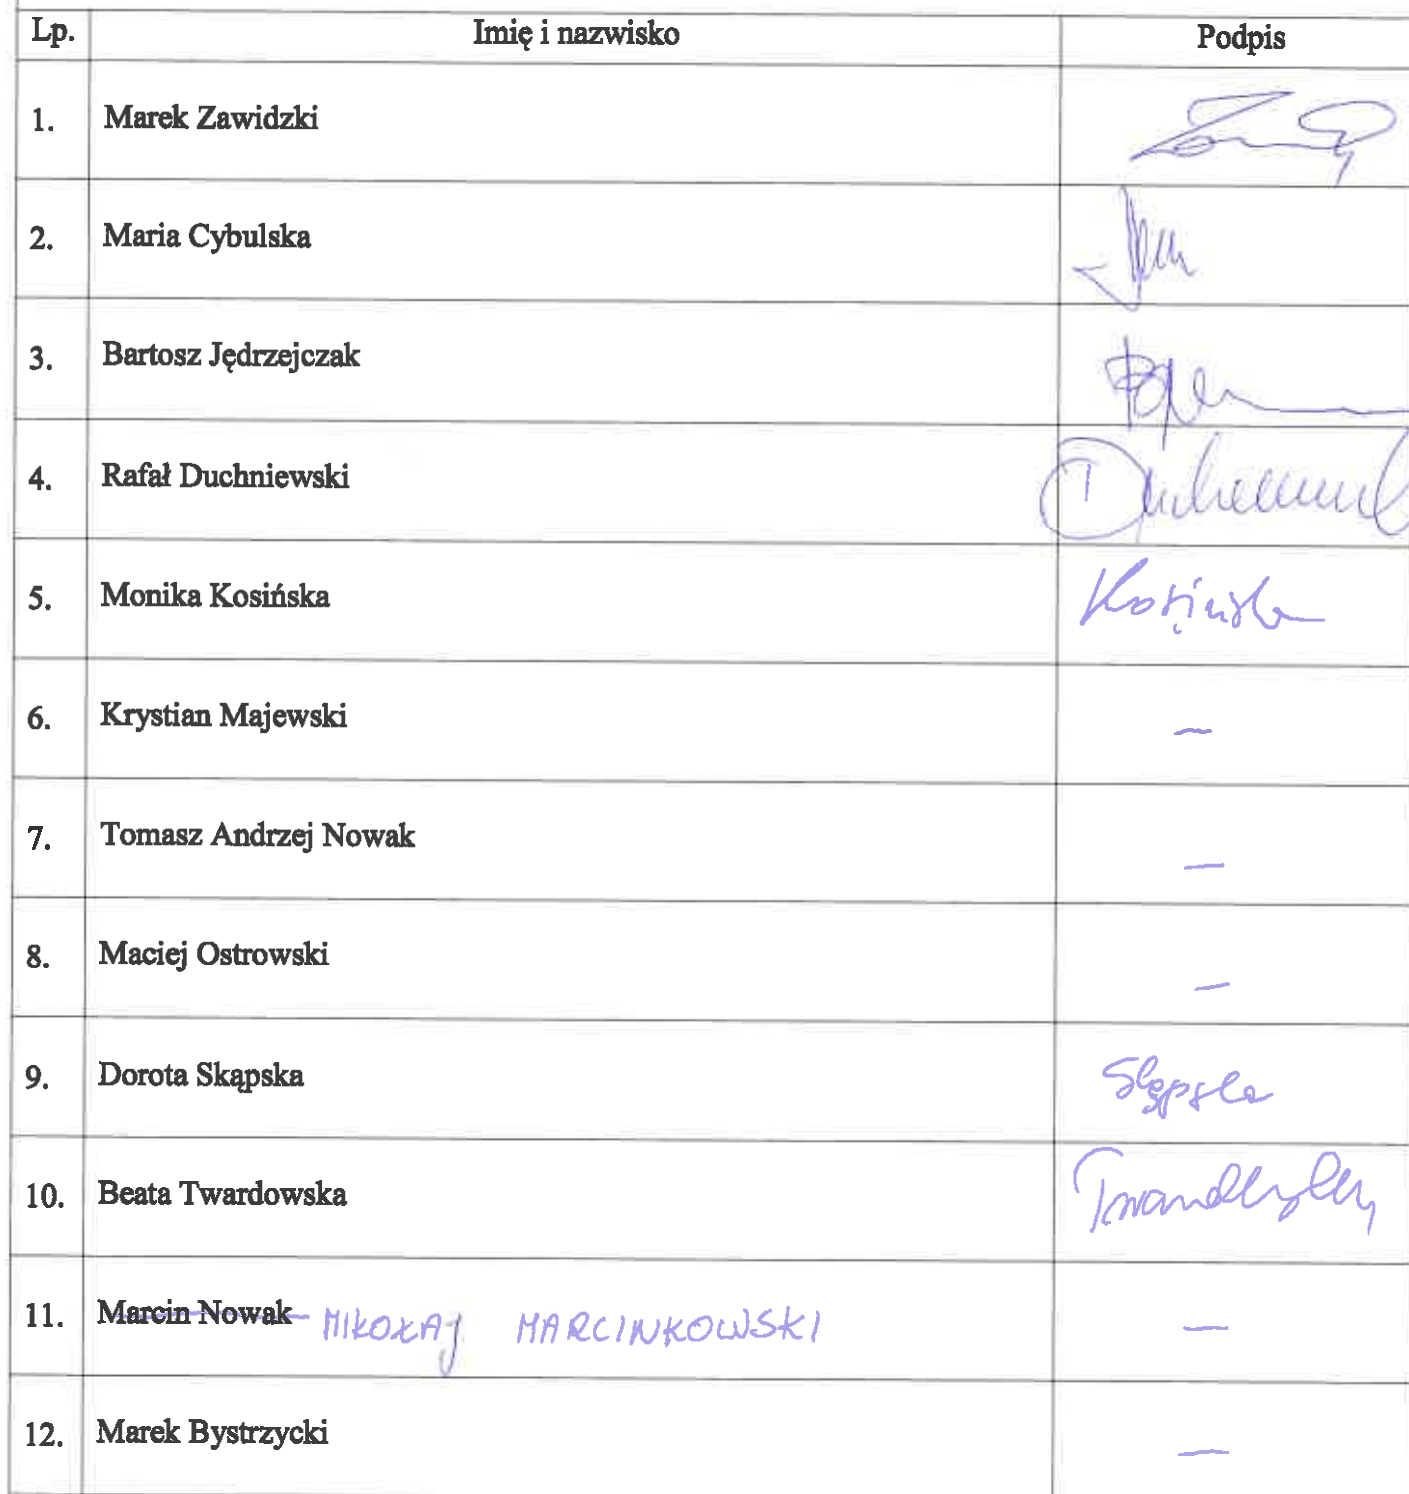 Lp. Imię i nazwisko Podpis
1. Marek Zawidzki
2. Maria Cybulska
3. Bartosz Jędrzejczak
4. Rafał Duchniewski
5. Monika Kosińska Kosińska
6. Krystian Majewski —
7. Tomasz Andrzej Nowak —
8. Maciej Ostrowski —
9. Dorota Skąpska Skąpska
10. Beata Twardowska
11. Marcin Nowak MIKOŁAJ MARCINKOWSKI —
12. Marek Bystrzycki —